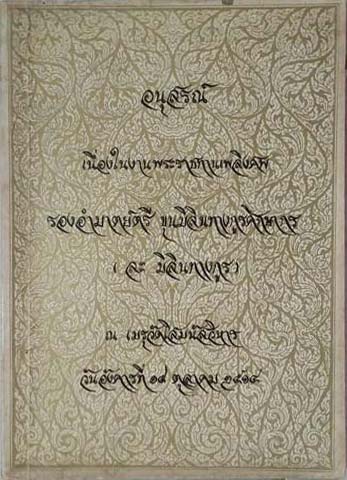 อนุสรณ์
เนื่องในงานพระราชทานเพลิงศพ
รองอำมาตย์ตรี ขุนมิลินทางกูรศึกษากร
( ละ มิลินทางกูร )
ณ เมรุวัดโสมนัสวิหาร
วันอังคารที่ ๑๙ ตุลาคม ๒๕๑๔